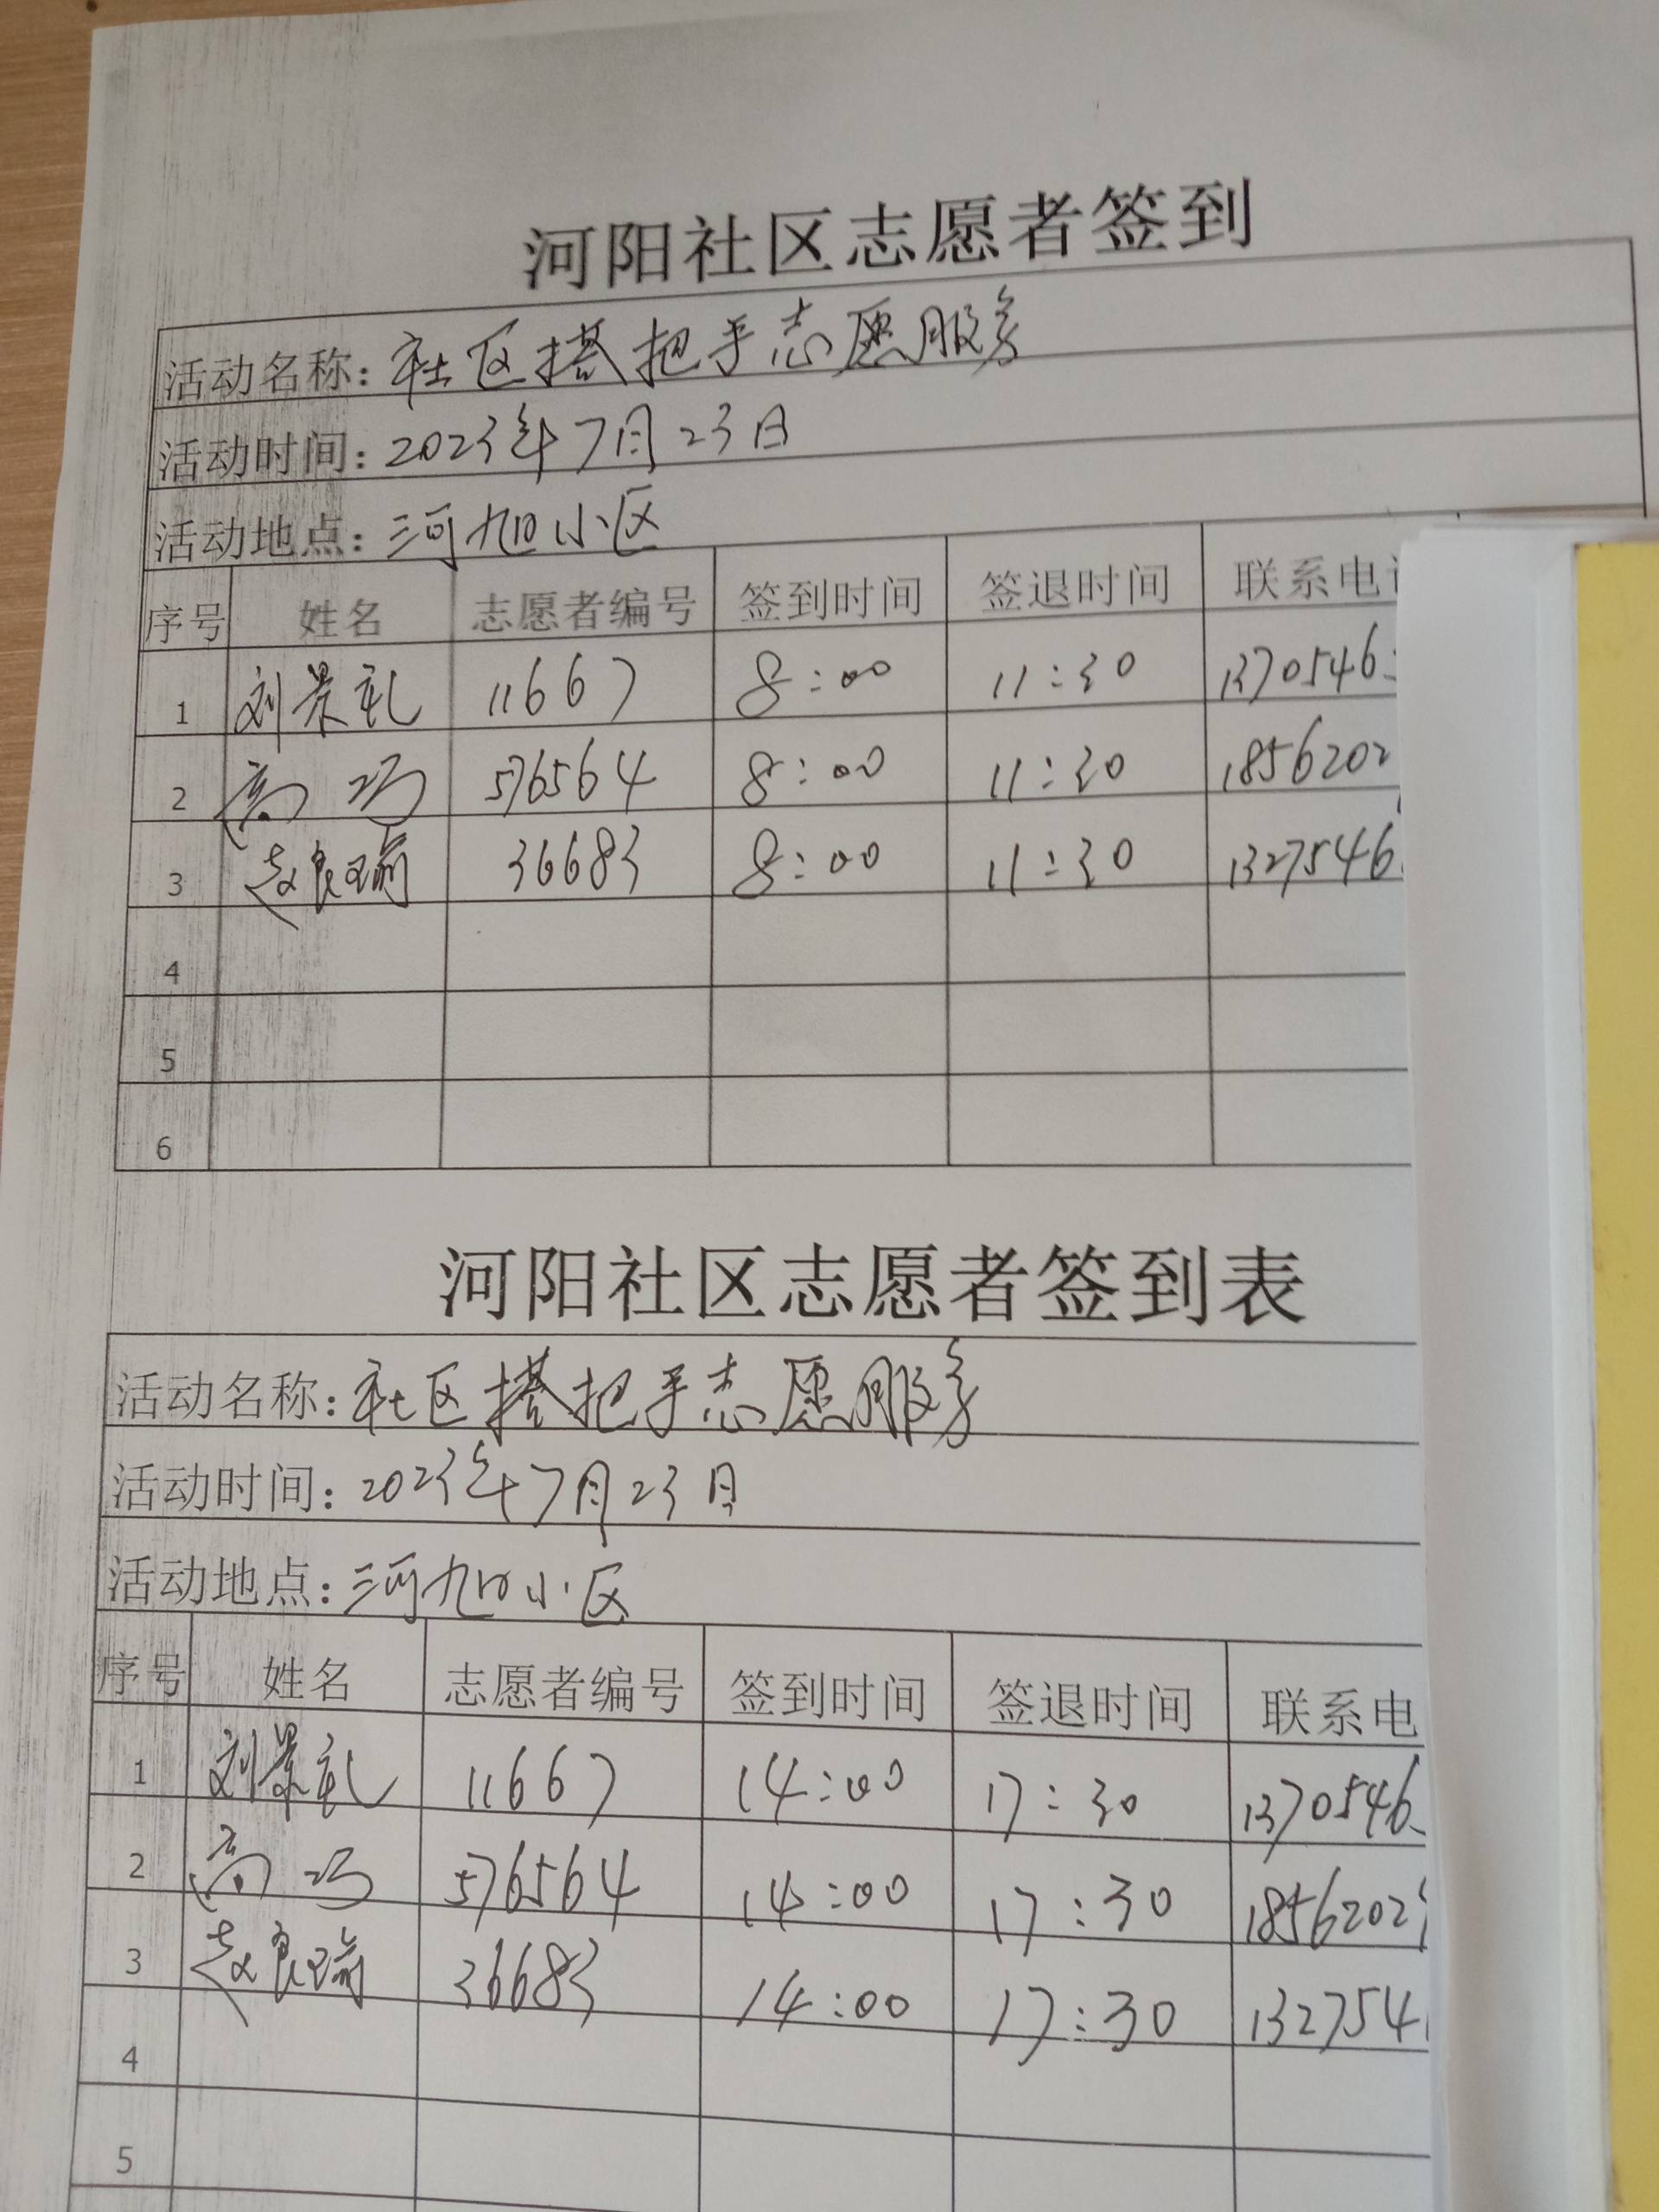 河阳社区志愿者签到
活动名称：社区搭把手志愿服务
活动时间：2023年7月23日
活动地点：河旭小区
序号 姓名 志愿者编号 签到时间 签退时间 联系电
1 刘景礼 11667 8:00 11:30 1370546
2 高巧 576564 8:00 11:30 1856202
3 赵良瑞 36683 8:00 11:30 1327546
4
5
6
河阳社区志愿者签到表
活动名称：社区搭把手志愿服务
活动时间：2023年7月23日
活动地点：河旭小区
序号 姓名 志愿者编号 签到时间 签退时间 联系电
1 刘景礼 11667 14:00 17:30 1370546
2 高巧 576564 14:00 17:30 1856202
3 赵良瑞 36683 14:00 17:30 132754
4
5